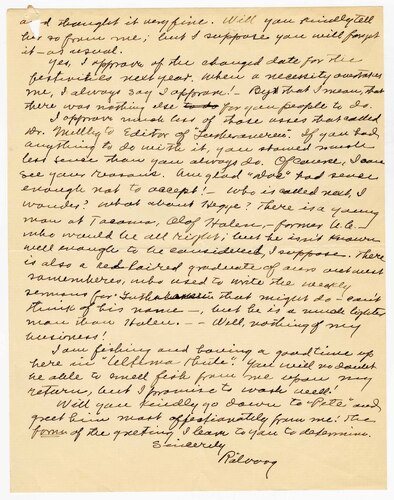 and thought it very fine. Will you kindly tell
her so from me; but I suppose you will forget
it - as usual.
Yes, I approve of the changed date for the
festivities next year. When a necessity overtakes
me, I always say I approve! - By that I mean, that
there was nothing else for you people to do.
I approve much less of those asses that called
Dr. Mellby to Editor of If you had
anything to do with it, you showed much
less sense than you always do. Of course, I can
see your reasons. Am glad "doc" had sense
enough not to accept! - Who is called next, I
wonder? What about There is a young
man at Tacoma, Olof Halen, - former A.C. -
who would be all right; but he isn't known
well enough to be considered, I suppose. There
is also a red haired graduate of ours out west
somewheres, who used to write the weekly
sermons for that might do - can't
think of his name -, but he is a much lighter
man than Halen. - - Well, nothing of my
business!
I am fishing and having a good time up
here in "Ultima Thule". You will no doubt
be able to smell fish from me upon my
return, but I promise to wash well!
Will you kindly go down to "Pete" and
greet him most affectionately from me! The
form of the greeting I leave to you to determine.
Sincerely
Rölvaag